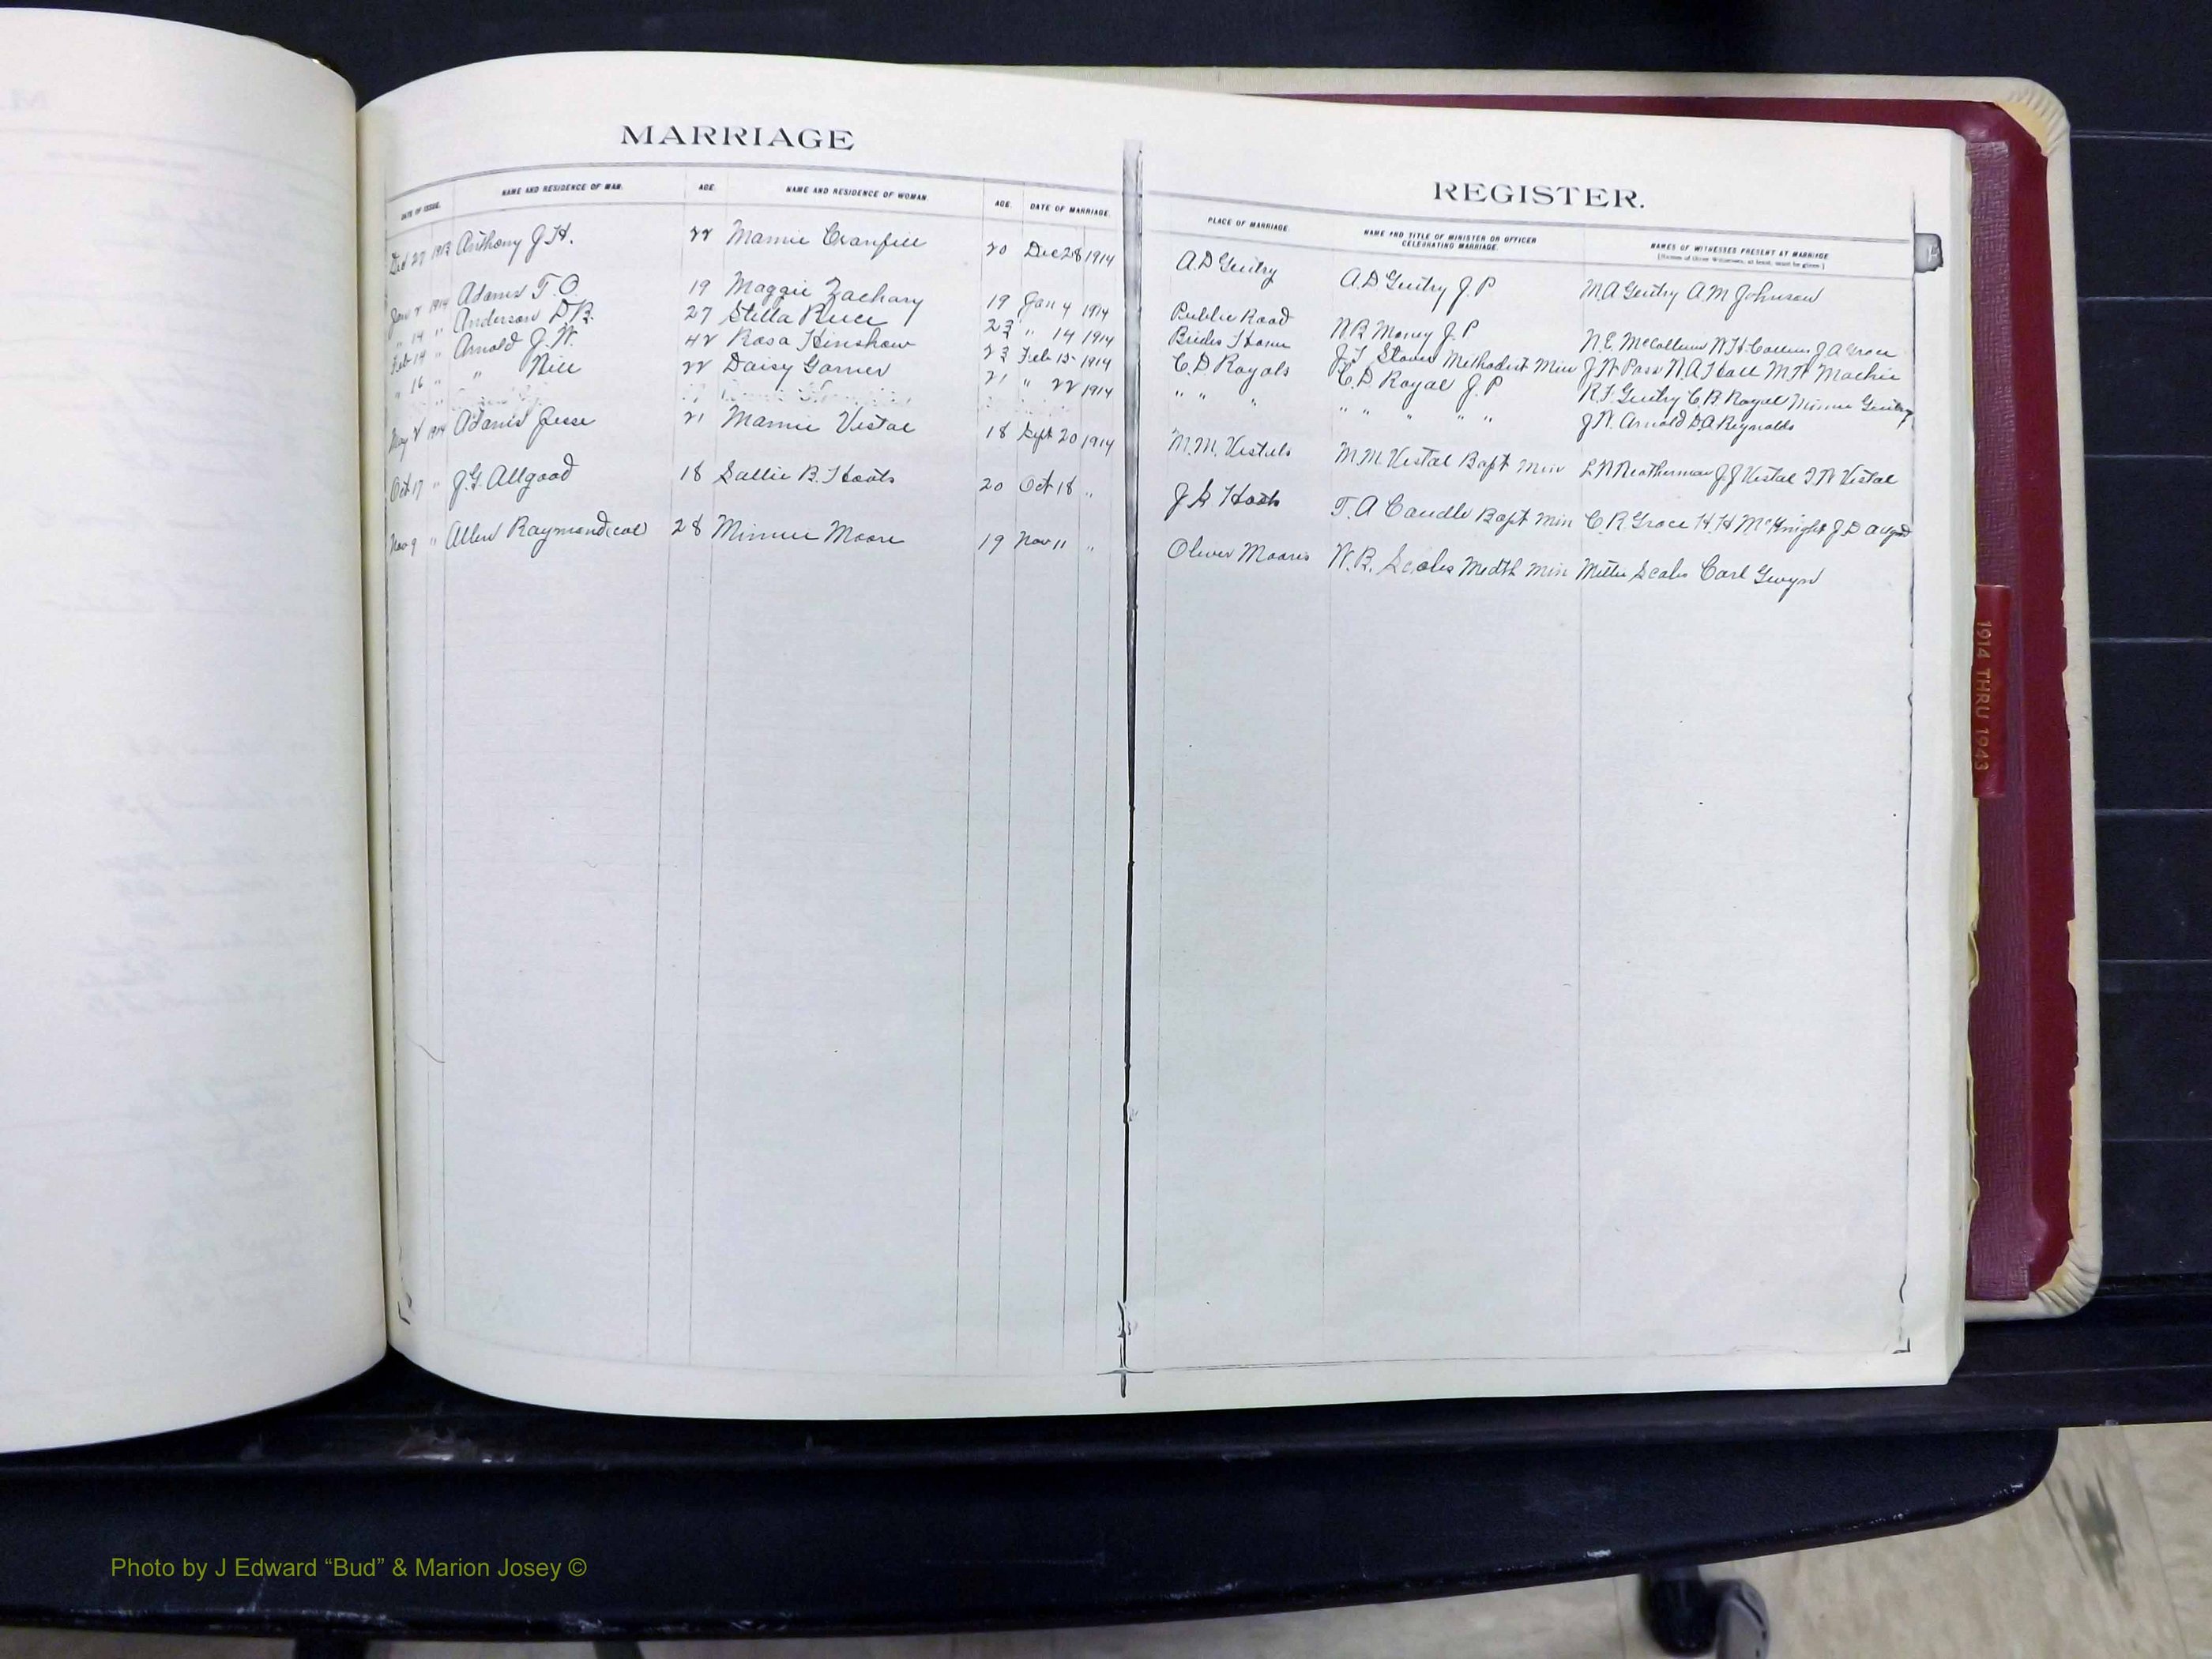 MARRIAGE
REGISTER.
DATE OF ISSUE. NAME AND RESIDENCE OF MAN. AGE. NAME AND RESIDENCE OF WOMAN AGE. DATE OF MARRIAGE. PLACE OF MARRIAGE. NAME AND TITLE OF MINISTER OR OFFICER CELEBRATING MARRIAGE. NAMES OF WITNESSES PRESENT AT MARRIAGE
Dec 27 1913 Anthony J.H. 22 Mamie Cranfill 20 Dec 28 1914 A.D Gentry A.D Gentry J.P M.A Gentry A.M Johnson
Jan 2 1914 Adams T.O. 19 Maggie Zachary 19 Jan 4 1914 Public Road N.B. Money J.P N.E. McCollum W.H. Collins J.A Grace
" 14 " Anderson D.B. 27 Stella 23 " 14 1914 Brides Home J.T. Methodist Min J.W. Pass N.A Hall M.W. Mackie
Feb 14 " Arnold J.W. 42 Rosa Hinshaw 23 Feb 15 1914 C.D Royals C.D Royal J.P R.F. Gentry C.B. Royal Minnie Gentry
" 16 " " Nill 22 Daisy Garner 21 " 22 1914 " " " " " " " " J.W. Arnold D.A Reynolds
May 2 1914 Adams Jesse 21 Mamie Vestal 18 Sept 20 1914 M.M. Vestals M.M Vestal Bapt Min J.J Vestal T.W Vestal
Oct 17 " J.G. Allgood 18 Sallie B. Hoots 20 Oct 18 " Hoots T.A Caudle Bapt Min C.R. Grace H.H McKnight J.D Allgood
Nov 9 " Allen Raymond (col) 28 Minnie Moore 19 Nov 11 " Oliver Moores W.B. Scales Medth Min Mettie Scales Carl Gwyn
1914 THRU 1943
Photo by J Edward “Bud” & Marion Josey ©